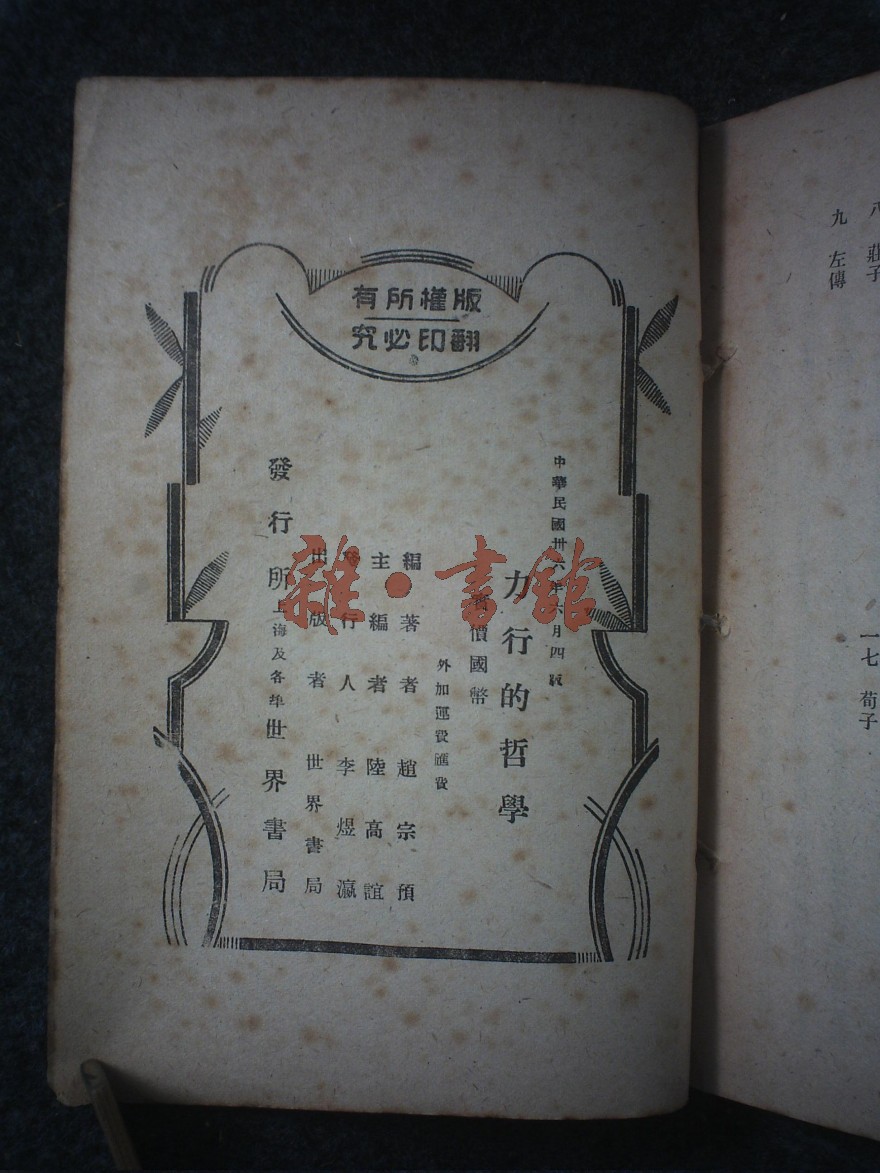 版權所有
翻印必究
中華民國卅六年六月四版
力行的哲學
實價國幣
外加運費匯費
編著者趙宗預
主編者陸高誼
發行人李煜瀛
出版者世界書局
發行所上海及各埠世界書局
雜·書館
八 莊子
九 左傳
一七 荀子